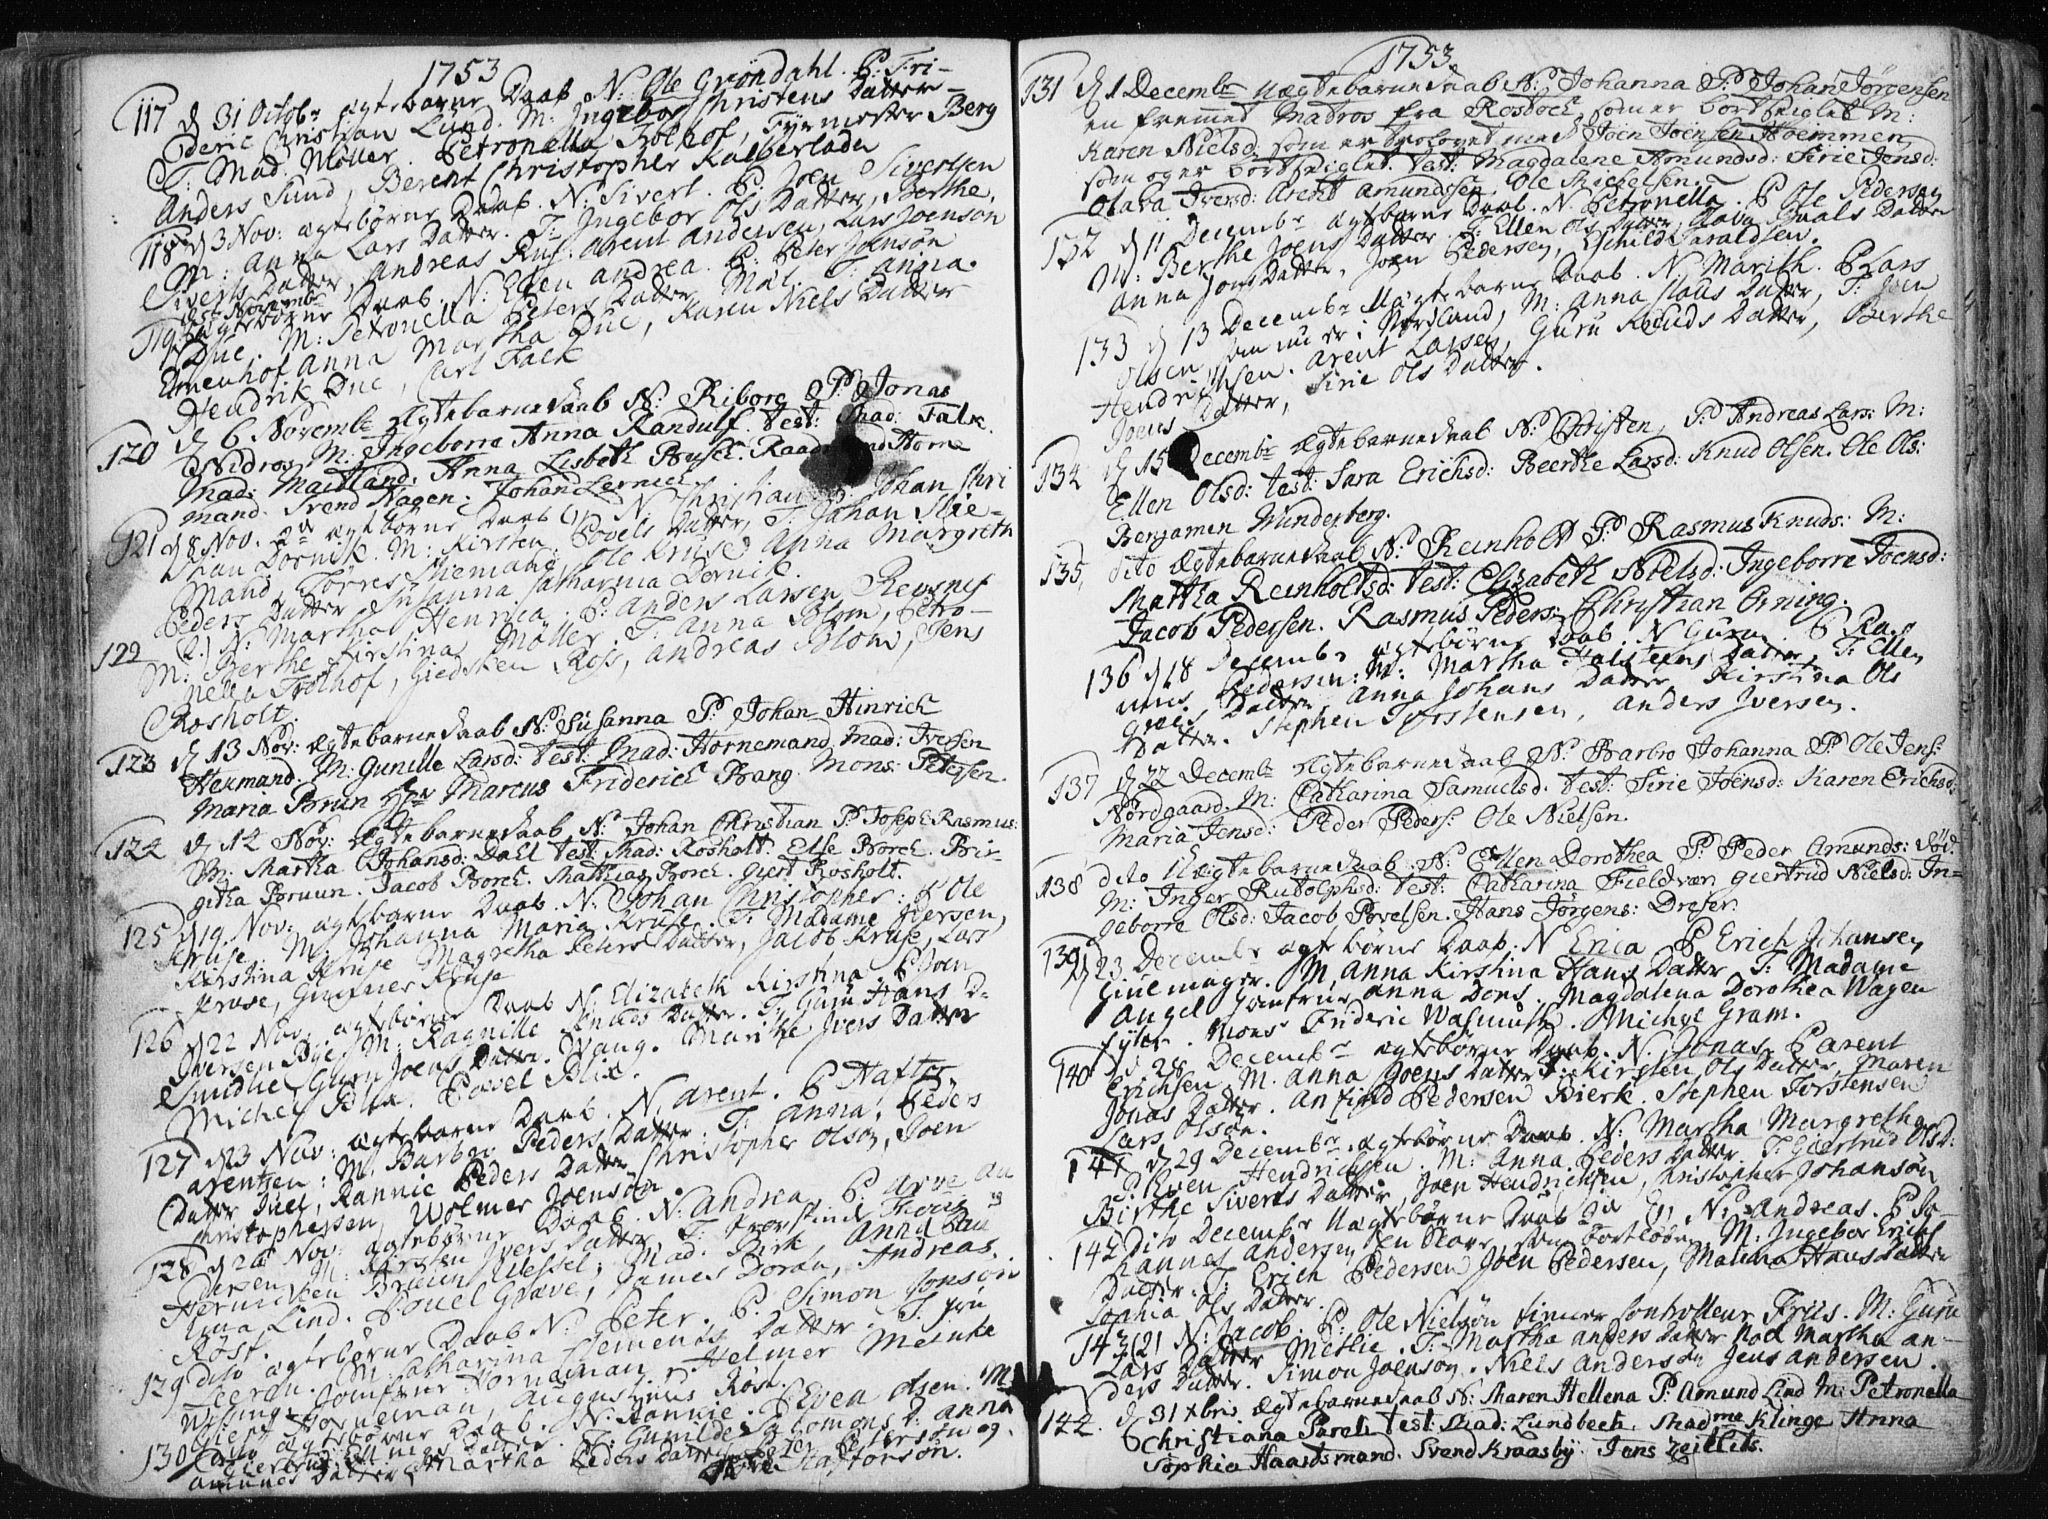 1753
117 d 31 Octobr ægtebarne Daab N: Ole Gröndahl. P: Fri-
ederic Christian Lund. M: Ingebor Christens Datter
T: Mad. Möller. Petronella Tolhof, Fyrmester Berg
Anders Lund, Berent Christopher Kalberladu
118 d 3 Nov: ægtebørne Daab. N: Sivert. P: Joen Sivertsen
M: Anna Lars Datter. T: Ingebor Ols Datter, Berthe
Siverts Datter, Andreas Rus. Arent Andersen, Lars Joenson
119 ægtebørne Daab. N: Ellen Andrea. P: Peter Jonsön
Due. M: Petronella Peters Datter Möl. T: Anna
Emenhof Anna Martha Due, Karen Niels Datter
Hendrik Due, Carl Falk
120 d 6 Novembr Ægtebarnedaab N: Riborg P: Jonas
Nidros M: Ingeborre Anna Randulf. test: Mad: Falk.
Mad: Maitland. Anna Lisbeth Busch. Raad Horne
mand. Svend Hagen. Johan Lerniel.
121 d 8 Nov. 2 ægtebørne Daab (1) N: Christian P: Johan Chri
stian Dornik. M: Kirsten Povels Datter, T: Johan Slie-
Mand, Torres Sliemand. Ole Kruse Anna Margreth
Peders Datter Susanna Catharina Dornik.
122 (2.) N: Martha Henrica. P: Anders Larsen Revsnes
M: Berthe Kirstina Möller. T: Anna Blom, Petro-
nella Tolhof, Giedsken Ross, Andreas Blom, Jens
Rosholt.
123 d 13 Nov: Ægtebarnedaab N: Susanna P: Johan Hinrich
Hermand. M: Gunille Larsd: test: Mad: Hornemand Mad: Iversen
Maria Brun Hr Marcus Friderich Bang. Mons: Petersen.
124 d 14 Nov: Ægtebarnedaab N: Johan Christian P: Joseph Rasmus:
M: Martha Johansd: Dahl test: Mad: Rosholt Else Borch. Bir-
githa Bruun. Jacob Borch. Matthias Borch. Giert Rosholt.
125 d 19 Nov: ægtebarne Daab. N: Johan Christopher. P Ole
Kruse. M: Johanna Maria Kruse. T: Madame Iversen,
Kirstina Kruse Magretha Peters Datter, Jacob Kruse, Lars
Kruse, Gunner Kruse
126 d 22 Nov. ægtebørne Daab N: Elizabeth Kirstina. P Joen
Iversen Bye, M: Ragnille Knuds Datter. T: Guru Hans D-
Smidue, Guru Joens Datter. Wang. Marithe Ivers Datter
Michel Blix. Povel Blix.
127 d 23 Nov: ægtebarne Daab. N: Arent. P Hafton
Arentzen: M. Barbro Peders Datter. T: Anna Peders
Datter Duel, Rannie Peders Datter Christopher Olson, Joen
Christophersen, Wolmer Joenson.
128 d 26 Nov: ægtebørne Daab. N: Andrea. P: Arne An
dersen, M: Kirsten Ivers Datter. T: Frorstinde Friis
Hermichen Brauen Wessel, Mad. Birk, Anna Bau
Anna Lind. Povel Grave, James Doran, Andreas
Röst.
129 Dito ægtebørne Daab N: Peter. P. Simon Jonson
Leeren. M: Catharina Clemends Datter. T. Jfru
Wissing, Jomfrue Horneman. Helmer Meinke
Giert Horneman, Augustinus Röst.
130 Dito ægtebørne Daab. N: Rannie. P Even Olsen. M:
Giertrud Ellings Datter. T: Gunilde Solomons D: Anna
Amunds Datter, Martha Peders Datter Peter Peterson og
Haftorsön.

1753
131 d 1 Decembr Uægtebarnedaab N: Johanna P: Johan Jörgensen
en fremmed Matros fra Rostoch, som er bortseiglet M:
Karen Nielsd: som er trolovet med Joen Joensen Hoemmen
som og er bortseiglet. test: Magdalene Amundsd: Sirie Jensd:
Olava Iversd: Arent Amundssen. Ole Mickelsen.
132 d 11 Decembr ægtebørne Daab. N. Petronella. P Ole Pedersen
M: Berthe Joens Datter. T: Ellen Ols Datter, Olava Haals Datter
Anna Jons Datter, Joen Pedersen, Eschild Haraldsen.
133 d 13 Decembr Uægtebarne Daab. N. Marith. P Lars
Olsen som nu er i Nordland, M: Anna Claus Datter, T: Joen
Hendrichsen. Arent Larsen, Guru Knuds Datter, Berthe
Joens Datter, Sirie Ols Datter.
134 d 15 Decembr Ægtebarnedaab N: Christen, P. Andreas Lars: M:
Ellen Olsd: test: Sara Erichsd: Beerthe Larsd: Knud Olsen. Ole Ols:
Benjamen Wunderberg.
135, dito Ægtebarnedaab N: Reinholt P: Rasmus Knuds: M:
Martha Reinholtsd: test: Elizabeth Nielsd: Ingeborre Joensd:
Jacob Pedersen. Rasmus Peders: Christian Orning.
136 d 18 Decembr ægtebørne Daab. N Guru. P Ras
mus Pedersen: M: Martha Halsteens Datter, T: Ellen
Groes Datter Anna Johans Datter Kirstina Ols
Datter. Stephen Torstensen, Anders Iversen.
137 d 22 Decembr Ægtebarnedaab N: Barbro Johanna P: Ole Jens:
Nordgaard. M: Catharina Samuelsd. test: Sirie Joensd: Karen Erichsd:
Maria Jensd: Peder Peders: Ole Nielsen.
138 dito Uægtebarnedaab. N: Ellen Dorothea P: Peder Amunds: Sød.
M: Inger Rudolphsd: test: Catharina Fieldvær Giertrud Nielsd: In-
geborre Olsd: Jacob Povelsen. Hans Jörgens: Dreser.
139 d 23 Decembr ægtebørne Daab. N Erica P Erich Johansen
Giulmager. M. Anna Kirstina Hans Datter T: Madame
Angel Gamtrup Anna Dons. Magdalena Dorothea Wagen
fyler. Mons Frideric Wasmuth. Michel Gram.
140 d 26 Decembr ægtebørne Daab. N. Jonas. P Arent
Erichsen M. Anna Joens Datter T: Kirsten Ols Datter, Maren
Jonas Datter. Anfind Pedersen Bierk. Stephen Torstensen
Lars Olson.
141 d 29 Decembr ægtebørne Daab. N: Martha Margretha
P. Even Hendrichsen. M: Anna Peders Datter. T. Giertrud Ols D:
Birthe Siverts Datter, Joen Hendrichsen, Christopher Johansön
142 Dito Decembr Uægtebørne Daab (1) N: Andreas. P Jo-
hannes Andersen en Slave, som bortlöben. M: Ingebor Erichs
Datter. T: Erich Pedersen Joen Pedersen, Malena Hans Datter
Sophia Ols Datter.
143 (2) N: Jacob. P: Ole Nielsön tiener Controlleur Friis. M: Guru
Lars Datter Methe. T: Martha Anders Datter Nock Martha An-
ders Datter. Simon Joenson. Niels Anderson Jens Andersen.
144. d 31 Xbris Ægtebarnedaab N: Maren Hellena P: Amund Lind M: Petronella
Christiana Parels test: Mad: Lundbech. Madme Klinge Anna
Sophia Haardsmand. Svend Kraasby. Jans Zeitlits.